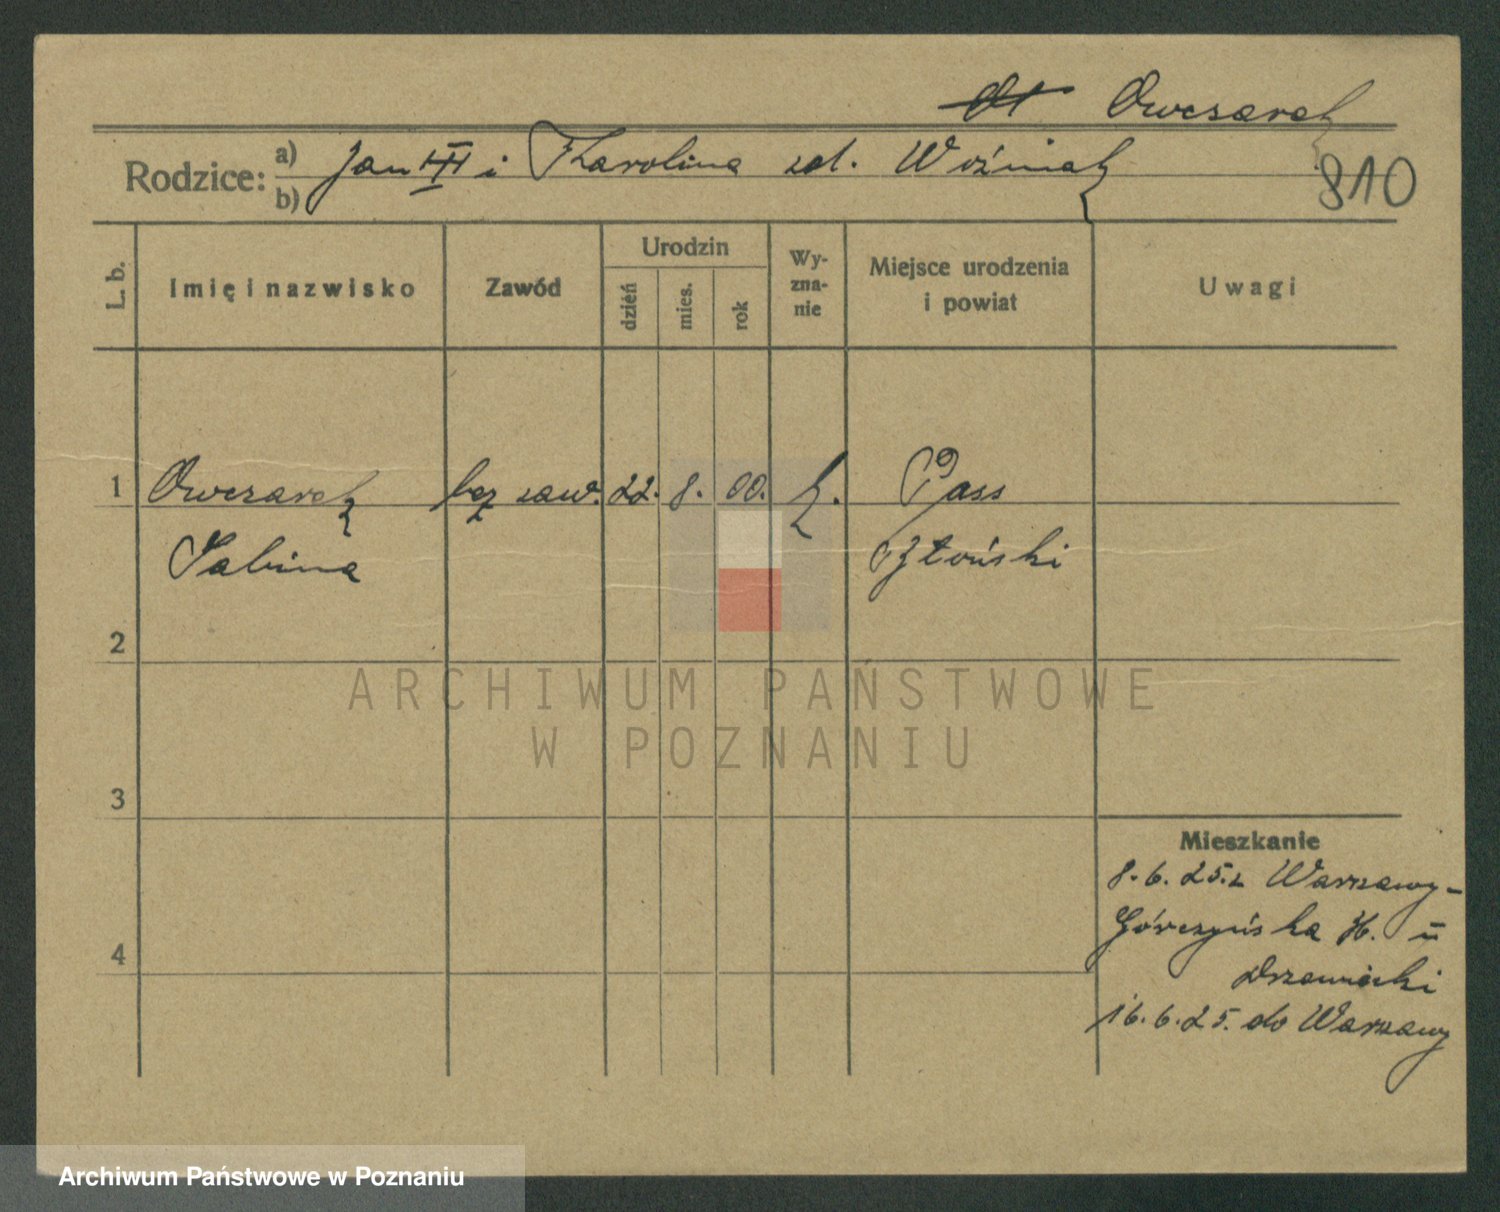 Owczarek
Rodzice: a) Jan i Karolina zd. Woźniak
b)
810
L. b.
Imię i nazwisko
Zawód
Urodzin
dzień
mies.
rok
Wy-
zna-
nie
Miejsce urodzenia
i powiat
Uwagi
1 Owczarek bez zaw. 22. 8. 00. k. Pass
Sabina Błoński
2
3
4
Mieszkanie
8.6.25. z Warszawy-
Górczyńska 16. u
16.6.25. do Warszawy
ARCHIWUM PAŃSTWOWE
W POZNANIU
Archiwum Państwowe w Poznaniu